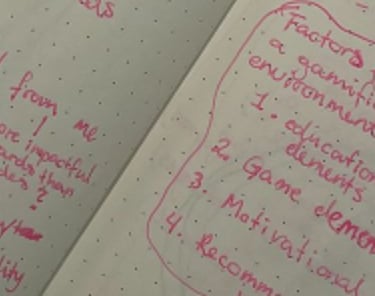 els
from me
ore impactful
ards than
dels?
lity
Factors
a gamifi
environmen
1. education
elements
2. Game elemen
3. Motivational
4. Recomm